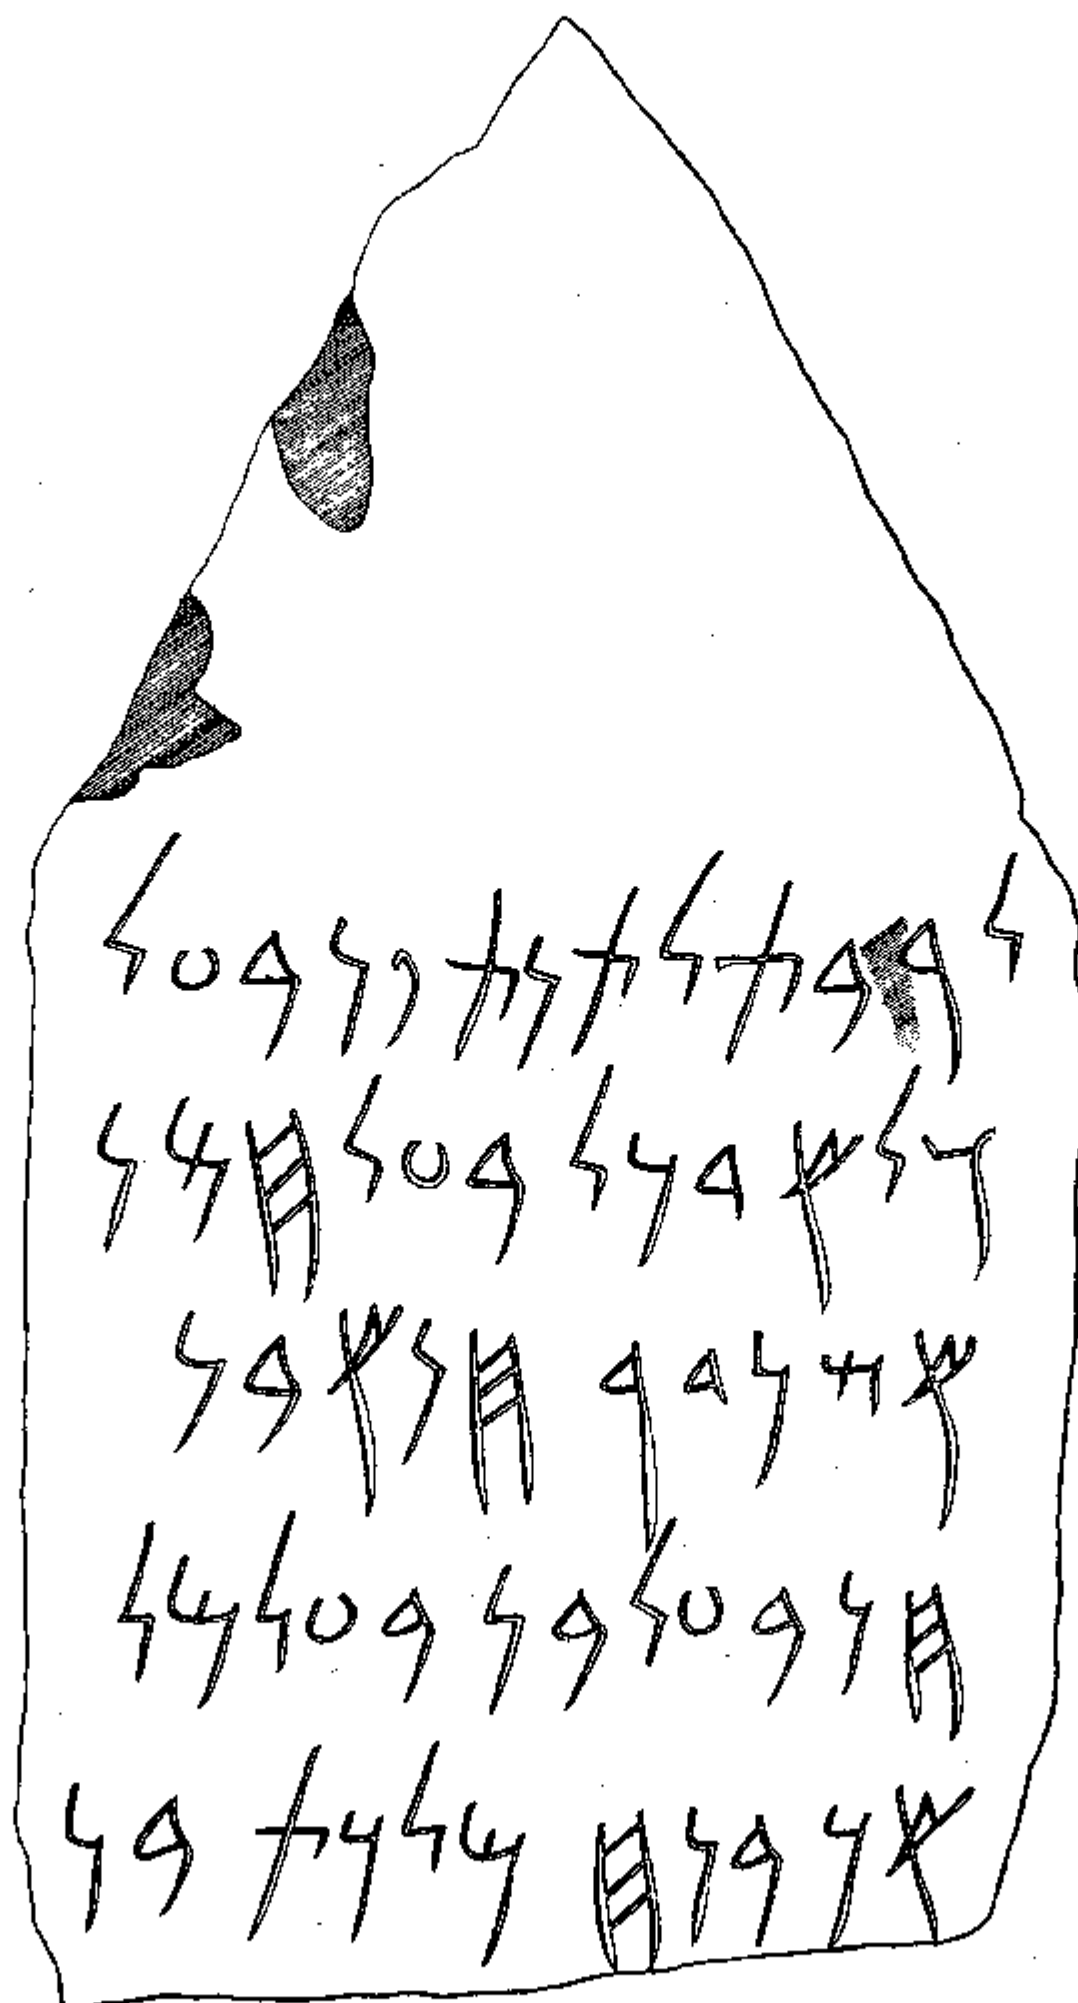 𐤋𐤓𐤁𐤕𐤋𐤕𐤍𐤕𐤐𐤍𐤁𐤏𐤋
𐤅𐤋𐤀𐤃𐤍𐤋𐤁𐤏𐤋𐤇𐤌𐤍
𐤀𐤔𐤍𐤃𐤓𐤇𐤍𐤀𐤁𐤍
𐤇𐤍𐤁𐤏𐤋𐤁𐤍𐤁𐤏𐤋𐤌𐤋
𐤀𐤊𐤁𐤍𐤇𐤌𐤋𐤊𐤕𐤁𐤍